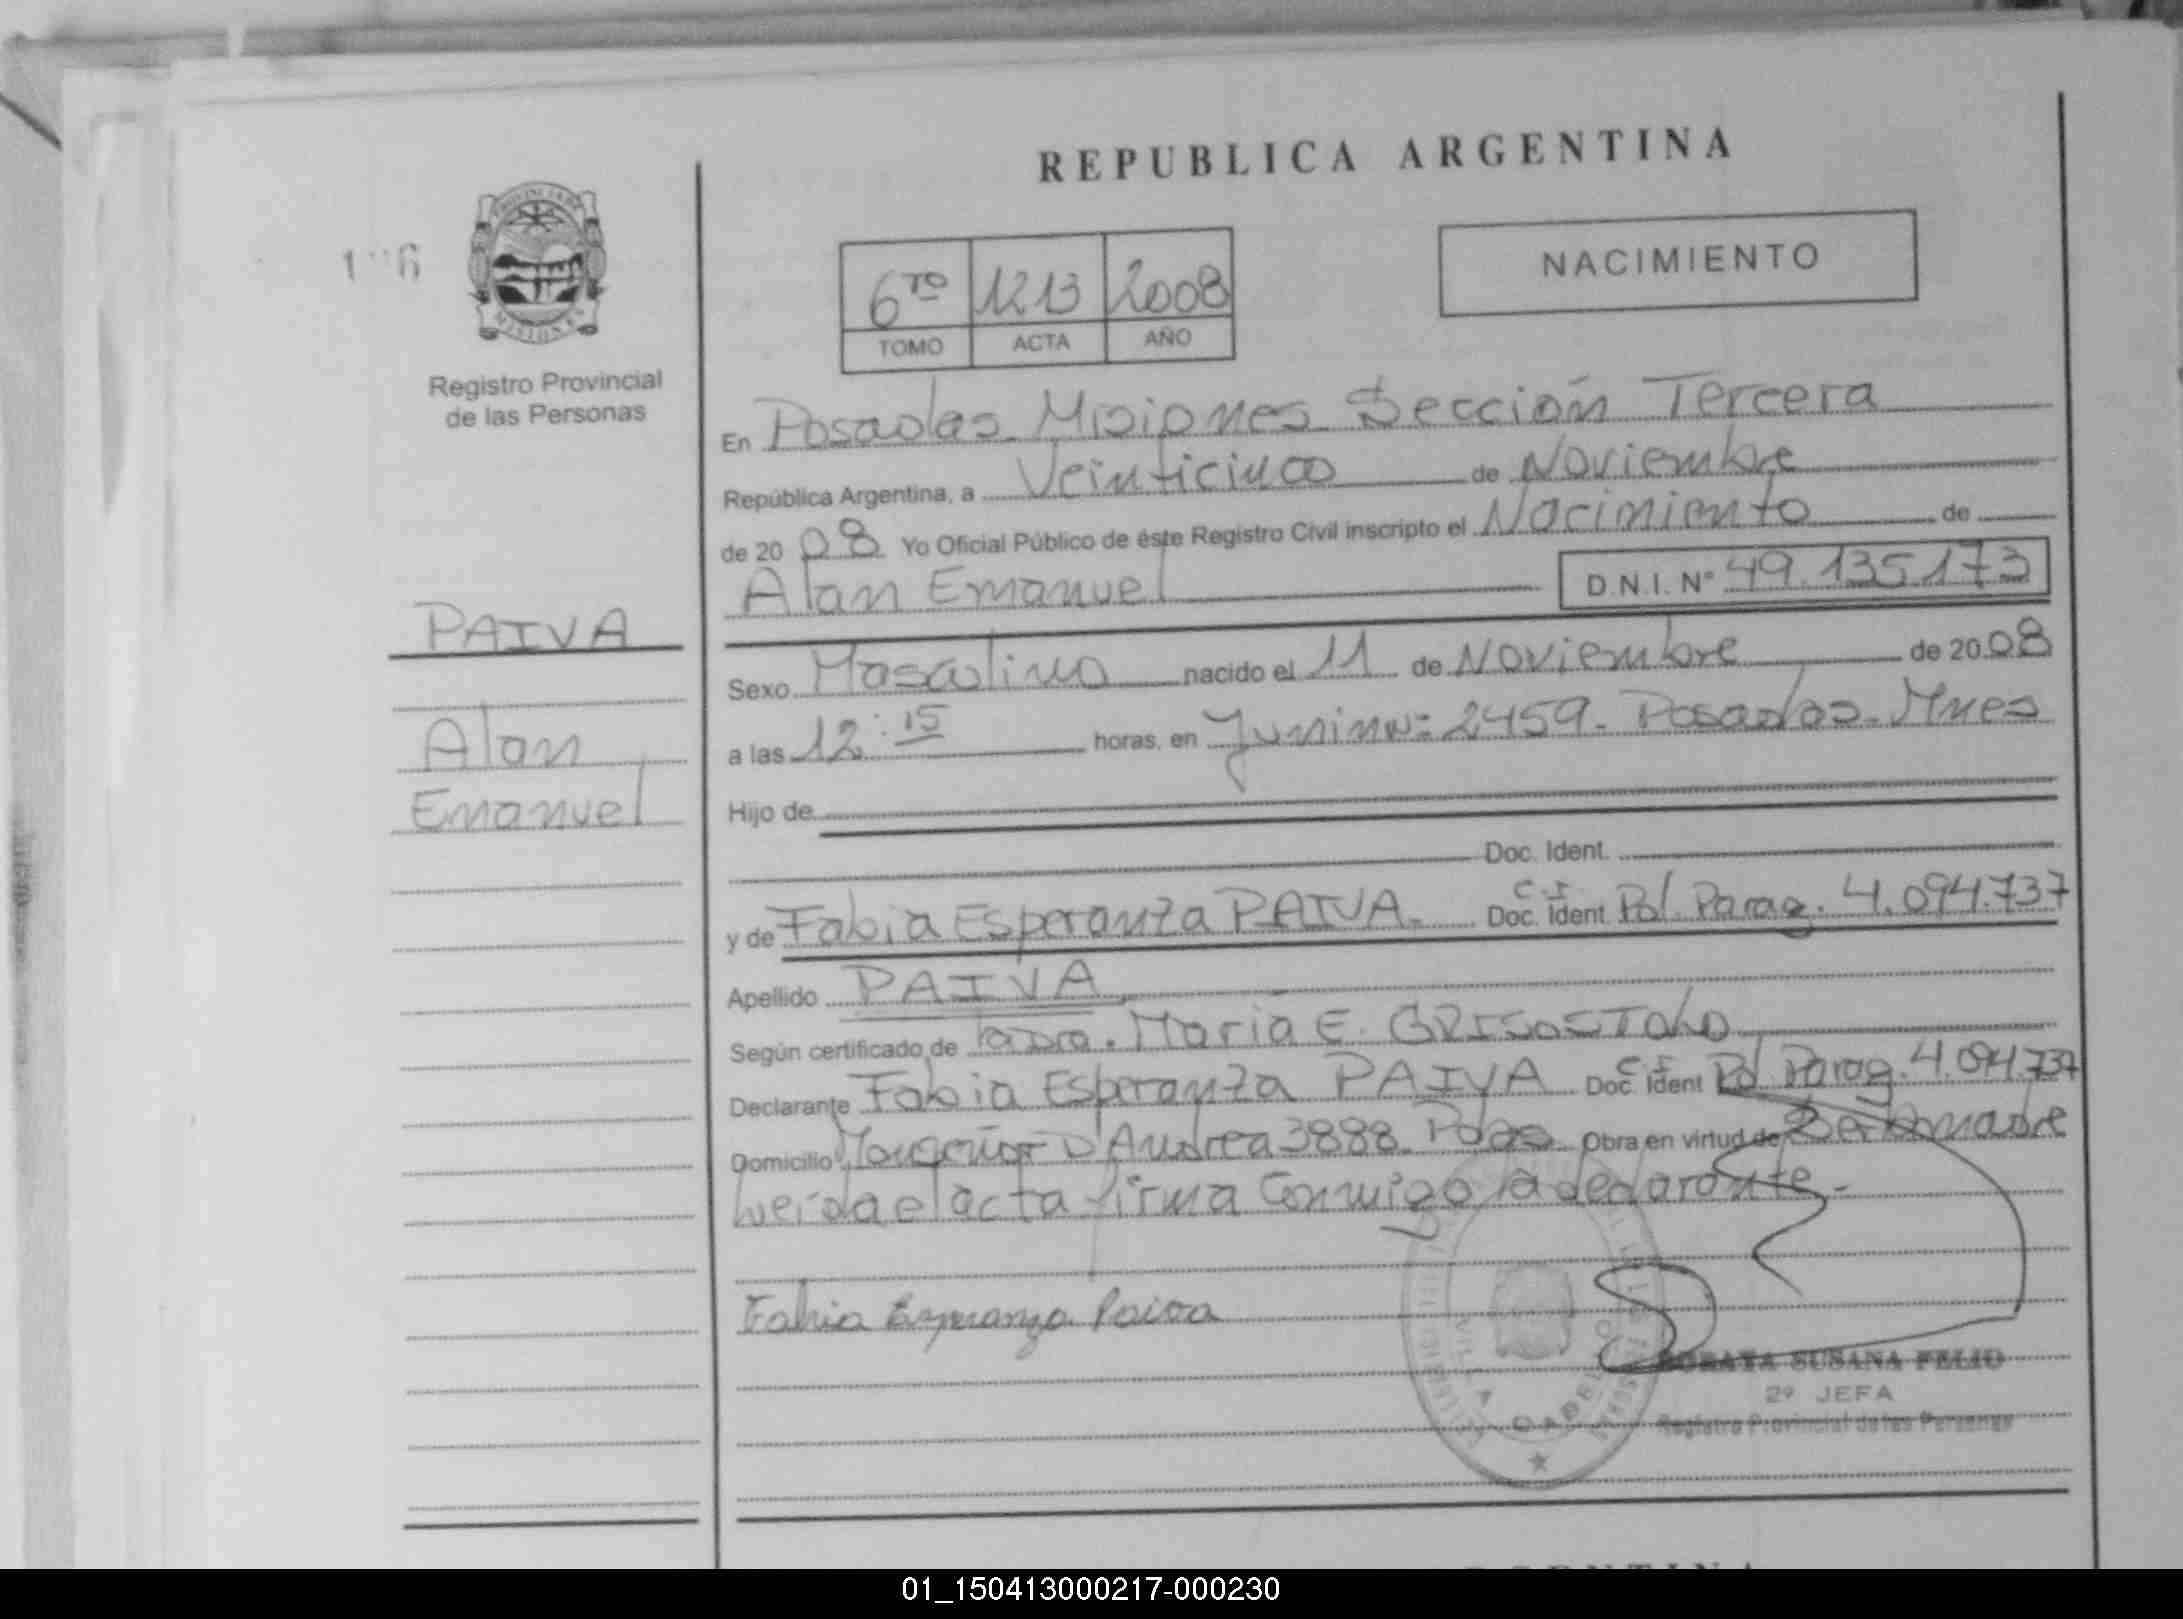 REPUBLICA ARGENTINA
PROVINCIA DE
MISIONES
Registro Provincial
de las Personas
NACIMIENTO
6ro 1213 2008
TOMO ACTA AÑO
En Posadas Misiones Sección Tercera
República Argentina, a Veinticinco de Noviembre
de 2008 Yo Oficial Público de éste Registro Civil inscripto el Nacimiento de
Alan Emanuel D.N.I. Nº 49.135173
PAIVA
Alan
Emanuel
Sexo Masculino nacido el 11 de Noviembre de 2008
a las 12:15 horas, en Junin Nº 2459. Posadas. Mnes
Hijo de
Doc. Ident.
y de Fabia Esperanza PAIVA. C.I. Doc. Ident. Pol. Parag. 4.094.737
Apellido PAIVA
Según certificado de la Dra. Maria E. GRISOSTOLO
Declarante Fabia Esperanza PAIVA C I Doc. Ident Pol. Parag. 4.094.737
Domicilio Monseñor D'Andrea 3888. Pdas Obra en virtud de Ser la madre
Leída el acta firma Conmigo la declarante.-
Fabia Esperanza Paiva
SUSANA FELIO
2º JEFA
Registro Provincial de las Personas
01_150413000217-000230